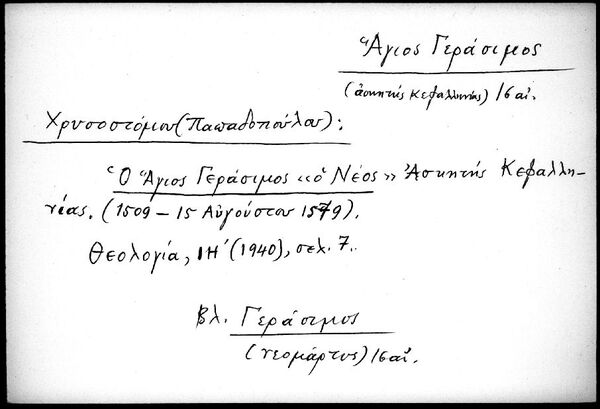 Ἅγιος Γεράσιμος
(ἀσκητής Κεφαλληνίας) 16 αἰ.
Χρυσοστόμου (Παπαδοπούλου):
Ὁ Ἅγιος Γεράσιμος «ὁ Νέος» Ἀσκητής Κεφαλλη-
νέας. (1509 – 15 Αὐγούστου 1579).
Θεολογία, ΙΗ΄ (1940), σελ. 7.
Βλ. Γεράσιμος
(νεομάρτυς) 16 αἰ.